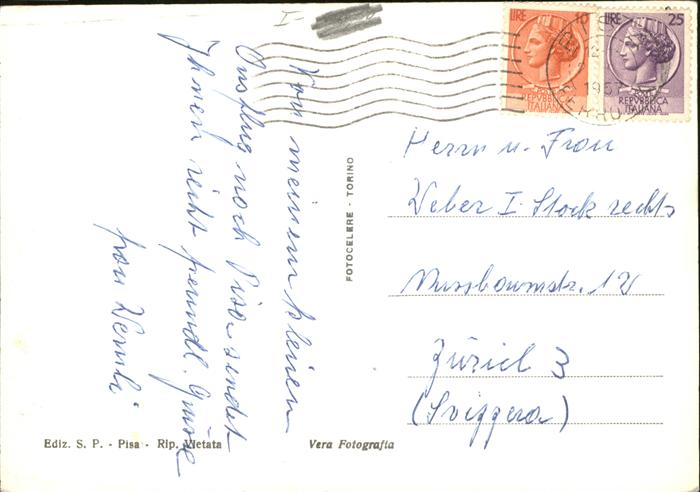 I
LIRE 10
REPVBBLICA
ITALIANA
LIRE 25
REPVBBLICA
ITALIANA
Von meinem kleinen
Ausflug nach Pisa sendet
Ihnen recht freundl. Grüsse
Frau Wernli
FOTOCELERE - TORINO
Herrn u. Frau
Weber I. Stock rechts
Nussbaumstr. 12
Zürich 3
(Svizzera)
Ediz. S. P. - Pisa - Rip. Vietata
Vera Fotografia